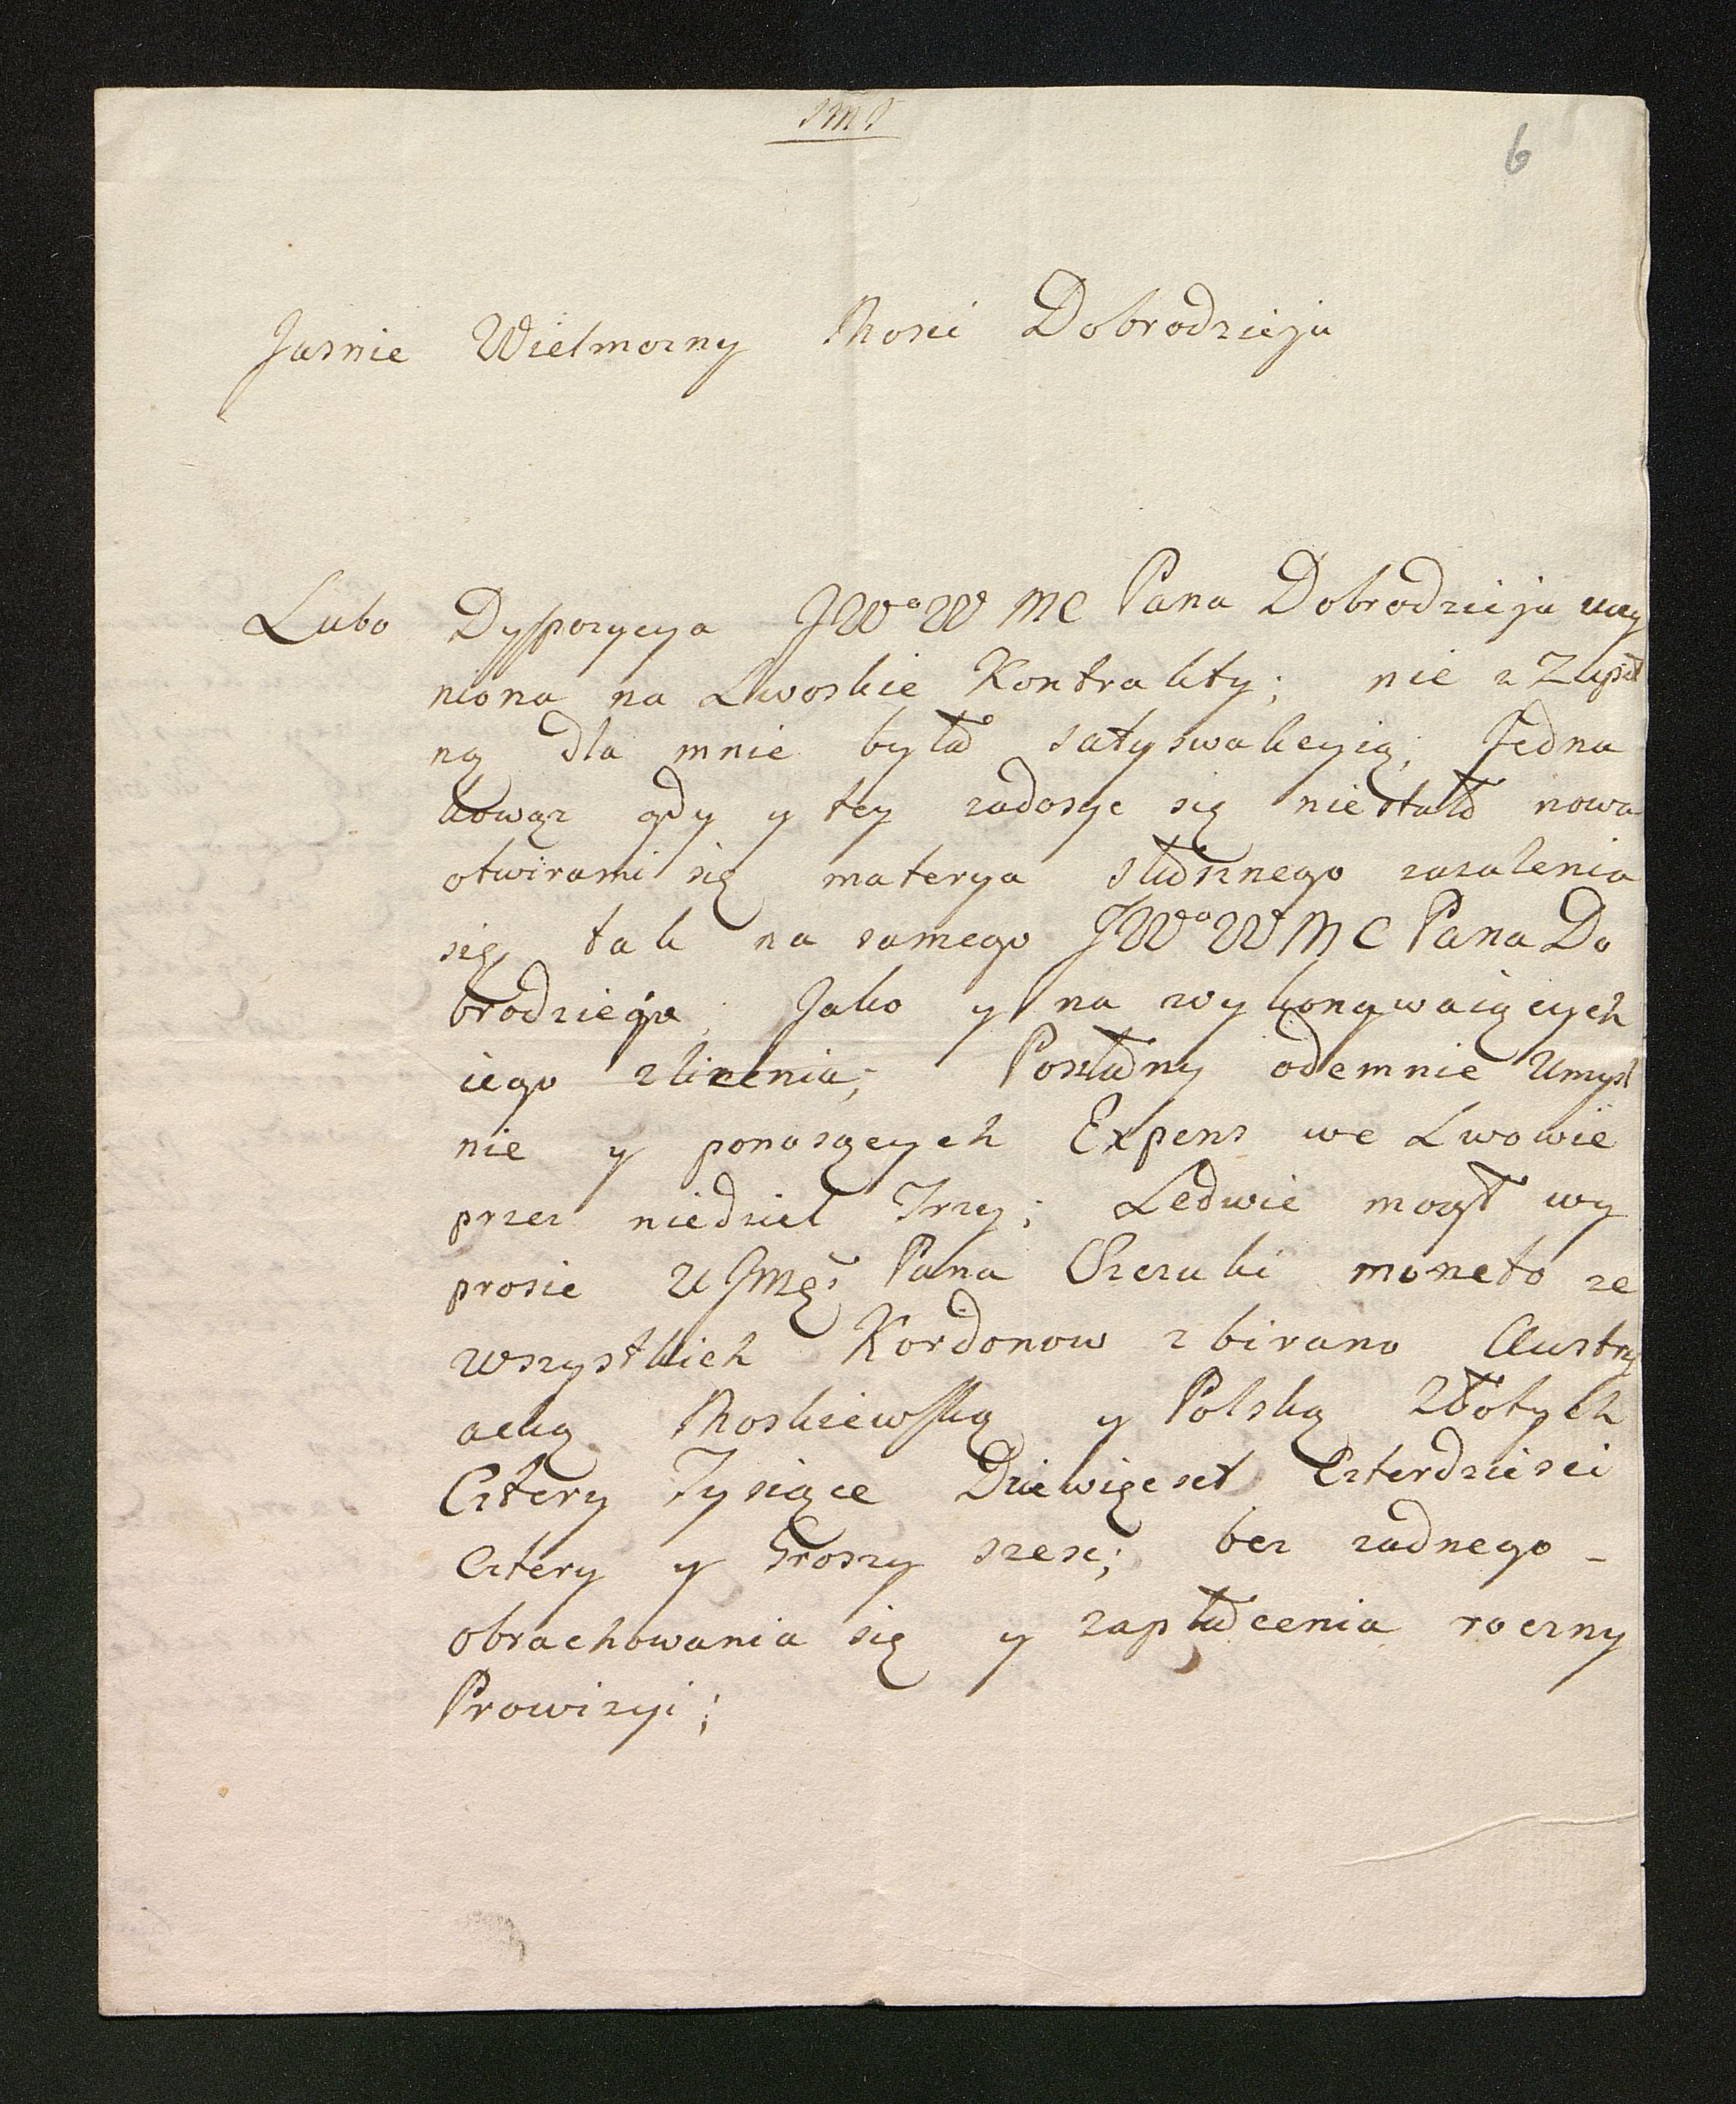 JMJ
6
Jasnie Wielmozny Mosci Dobrodzieju
Lubo Dyspozycya JWo W MC Pana Dobrodzieja uczy
niona na Lwoskie Kontrakty; nie z Zupeł
ną dla mnie była satyswakcyią, Jedna
kowąz gdy y tey zadosyc się niestało nowa
otwirami się materya słusznego zazalenia
się, tak na samego JWo W MC Pana Do
brodzieja, Jako y na wykonywaiących
iego zlicenia; Posłany odemnie Umysl
nie y ponoszących Expens we Lwowie
przez niedziel Trzy; Ledwie mogł wy
prosic U JMę Pana moneto ze
wszystkich Kordonow zbirano Austry
acką Moskiewską y Polską Złotych
Cztery Tysiące Dziewięcset Czterdziesci
Cztery y Groszy szesc; bez zadnego -
obrachowania się y zapłacenia roczny
Prowizyi;